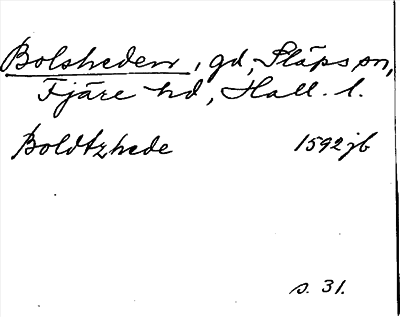 Bolsheden, gd, Släps sn,
Fjäre hd, Hall. l.
Boldtzhede 1592 jb
s. 31.